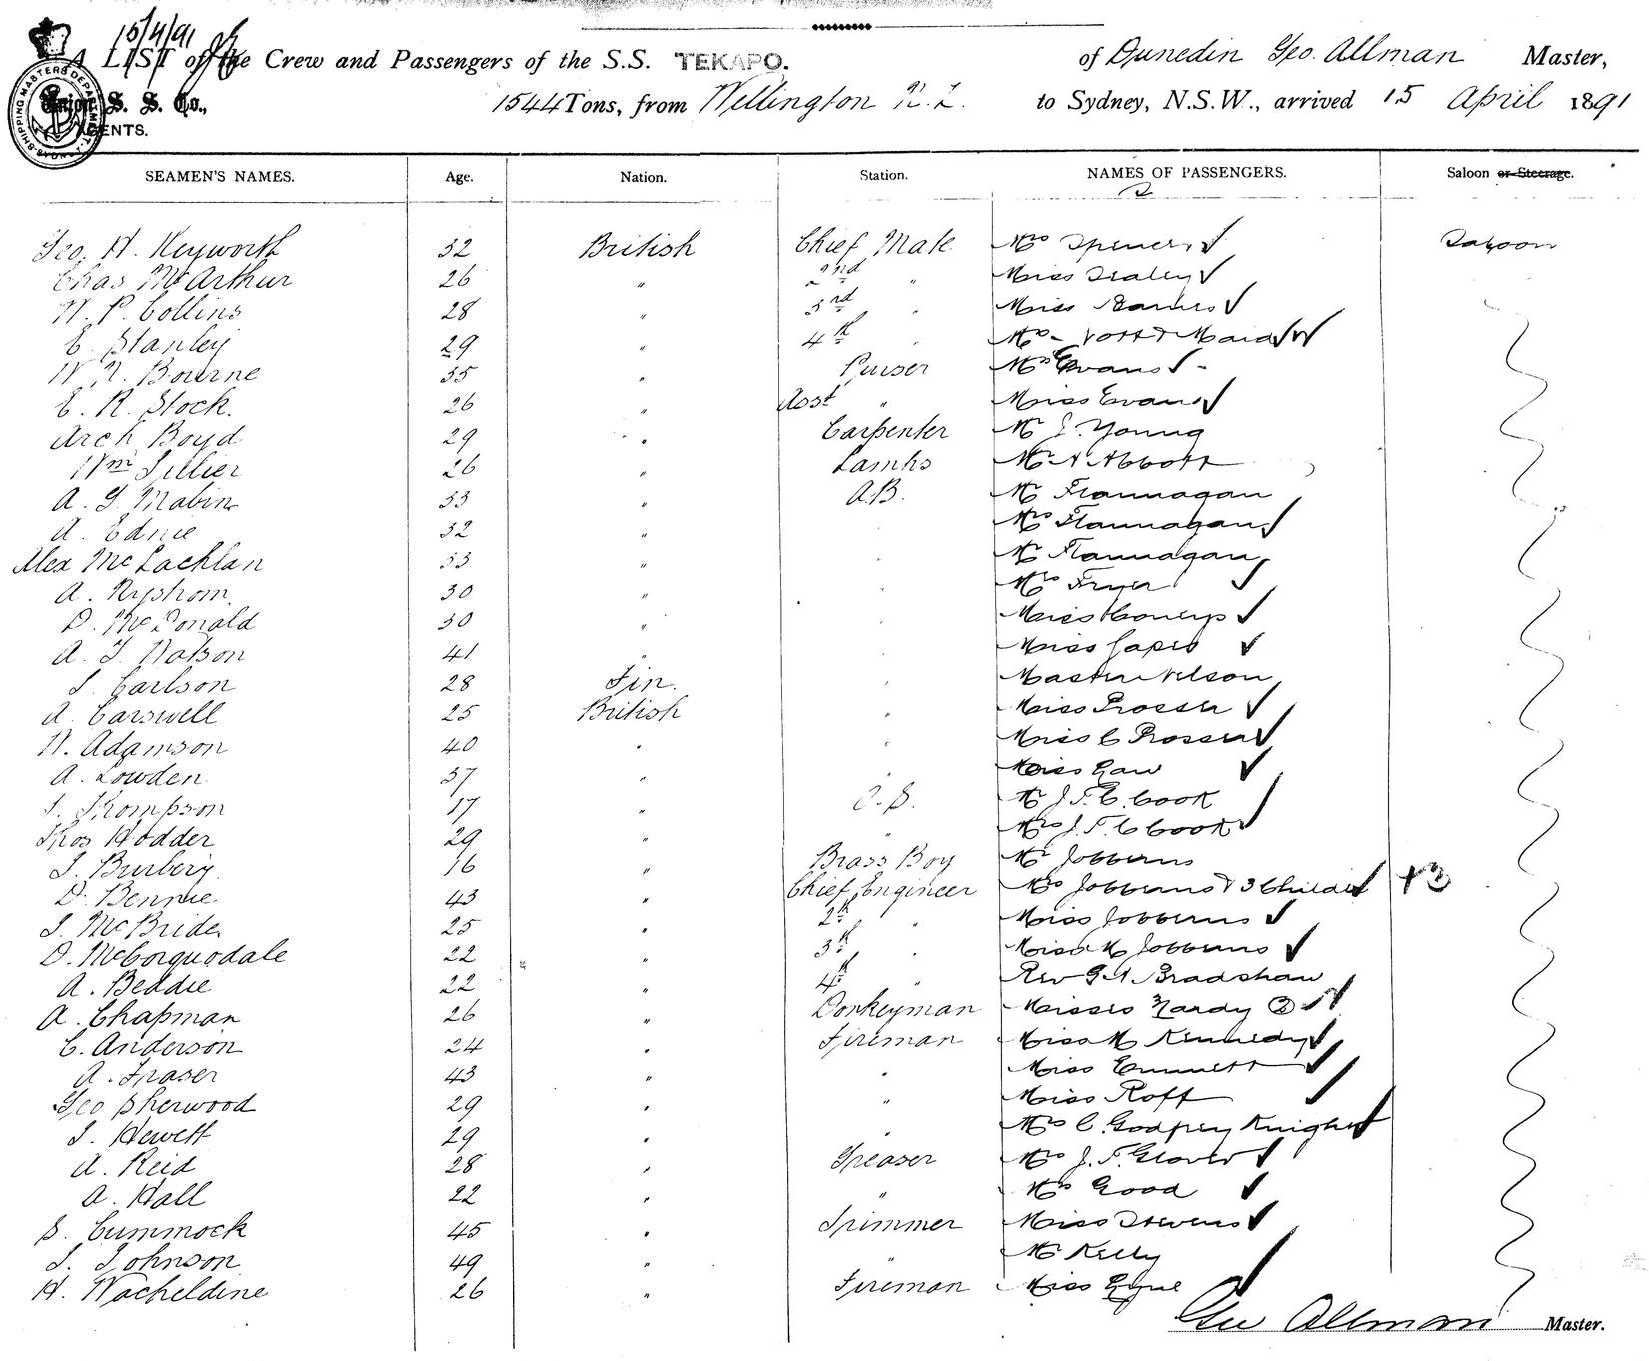 15/4/91
A LIST of the Crew and Passengers of the S.S. TEKAPO. of Dunedin Geo. Allman Master,
Union S. S. Co., 1544 Tons, from Wellington N.Z. to Sydney, N.S.W., arrived 15 April 1891
AGENTS.
SEAMEN'S NAMES. Age. Nation. Station. NAMES OF PASSENGERS. Saloon or Steerage.
Geo. H. Heyworth 32 British Chief Mate Mrs Spencer Saloon
Chas McArthur 26 " 2nd " Miss Sealey
W. P. Collins 28 " 3rd " Miss Barnes
E. Stanley 29 " 4th " Mrs & Maid
W. R. Bourne 35 " Purser Mrs Evans
E. R. Stock. 26 " Asst " Miss Evans
Arch Boyd 29 " Carpenter Mr J. Young
Wm 26 " Lamps Mr A Abbott
A. G. Mabin 33 " A.B. Mr Flannagan
A. Ednie 32 " Mrs Flannagan
Alex McLachlan 33 " Mr Flannagan
A. Nystrom 30 " Mrs Fryer
D. McDonald 30 " Miss
A. T. Watson 41 " Miss
J. Carlson 28 Fin. Master Nelson
A. Carswell 25 British Miss Prosser
W. Adamson 40 " Miss C Prosser
A. Lowden 37 " Miss
J. Thompson 17 " O.S. Mr J. F. C. Cook
Thos Hodder 29 " " Mrs J. F. C Cook
J. Burbery 16 " Brass Boy Mr Jobberns
D. Bennie 43 " Chief Engineer Mrs Jobberns & 3 Children +3
J. McBride 25 " 2nd " Miss Jobberns
D. McCorquodale 22 " 3rd " Miss M Jobberns
A. Beddie 22 " 4th " Rev Bradshaw
A. Chapman 26 " Donkeyman Misses Hardy (2)
C. Anderson 24 " Fireman Miss M Kennedy
A. Fraser 43 " " Miss Emmett
Geo Sherwood 29 " " Miss Roff
J. Hewett 29 " " Mrs C. Godfrey Knight
A. Reid 28 " Greaser Mrs J. F. Glover
A. Hall 22 " " Mrs Good
S. Cummock 45 " Trimmer Miss Stevens
J. Johnson 49 " " Mr Kelly
H. Wacheldine 26 " Fireman Miss
Geo Allman Master.